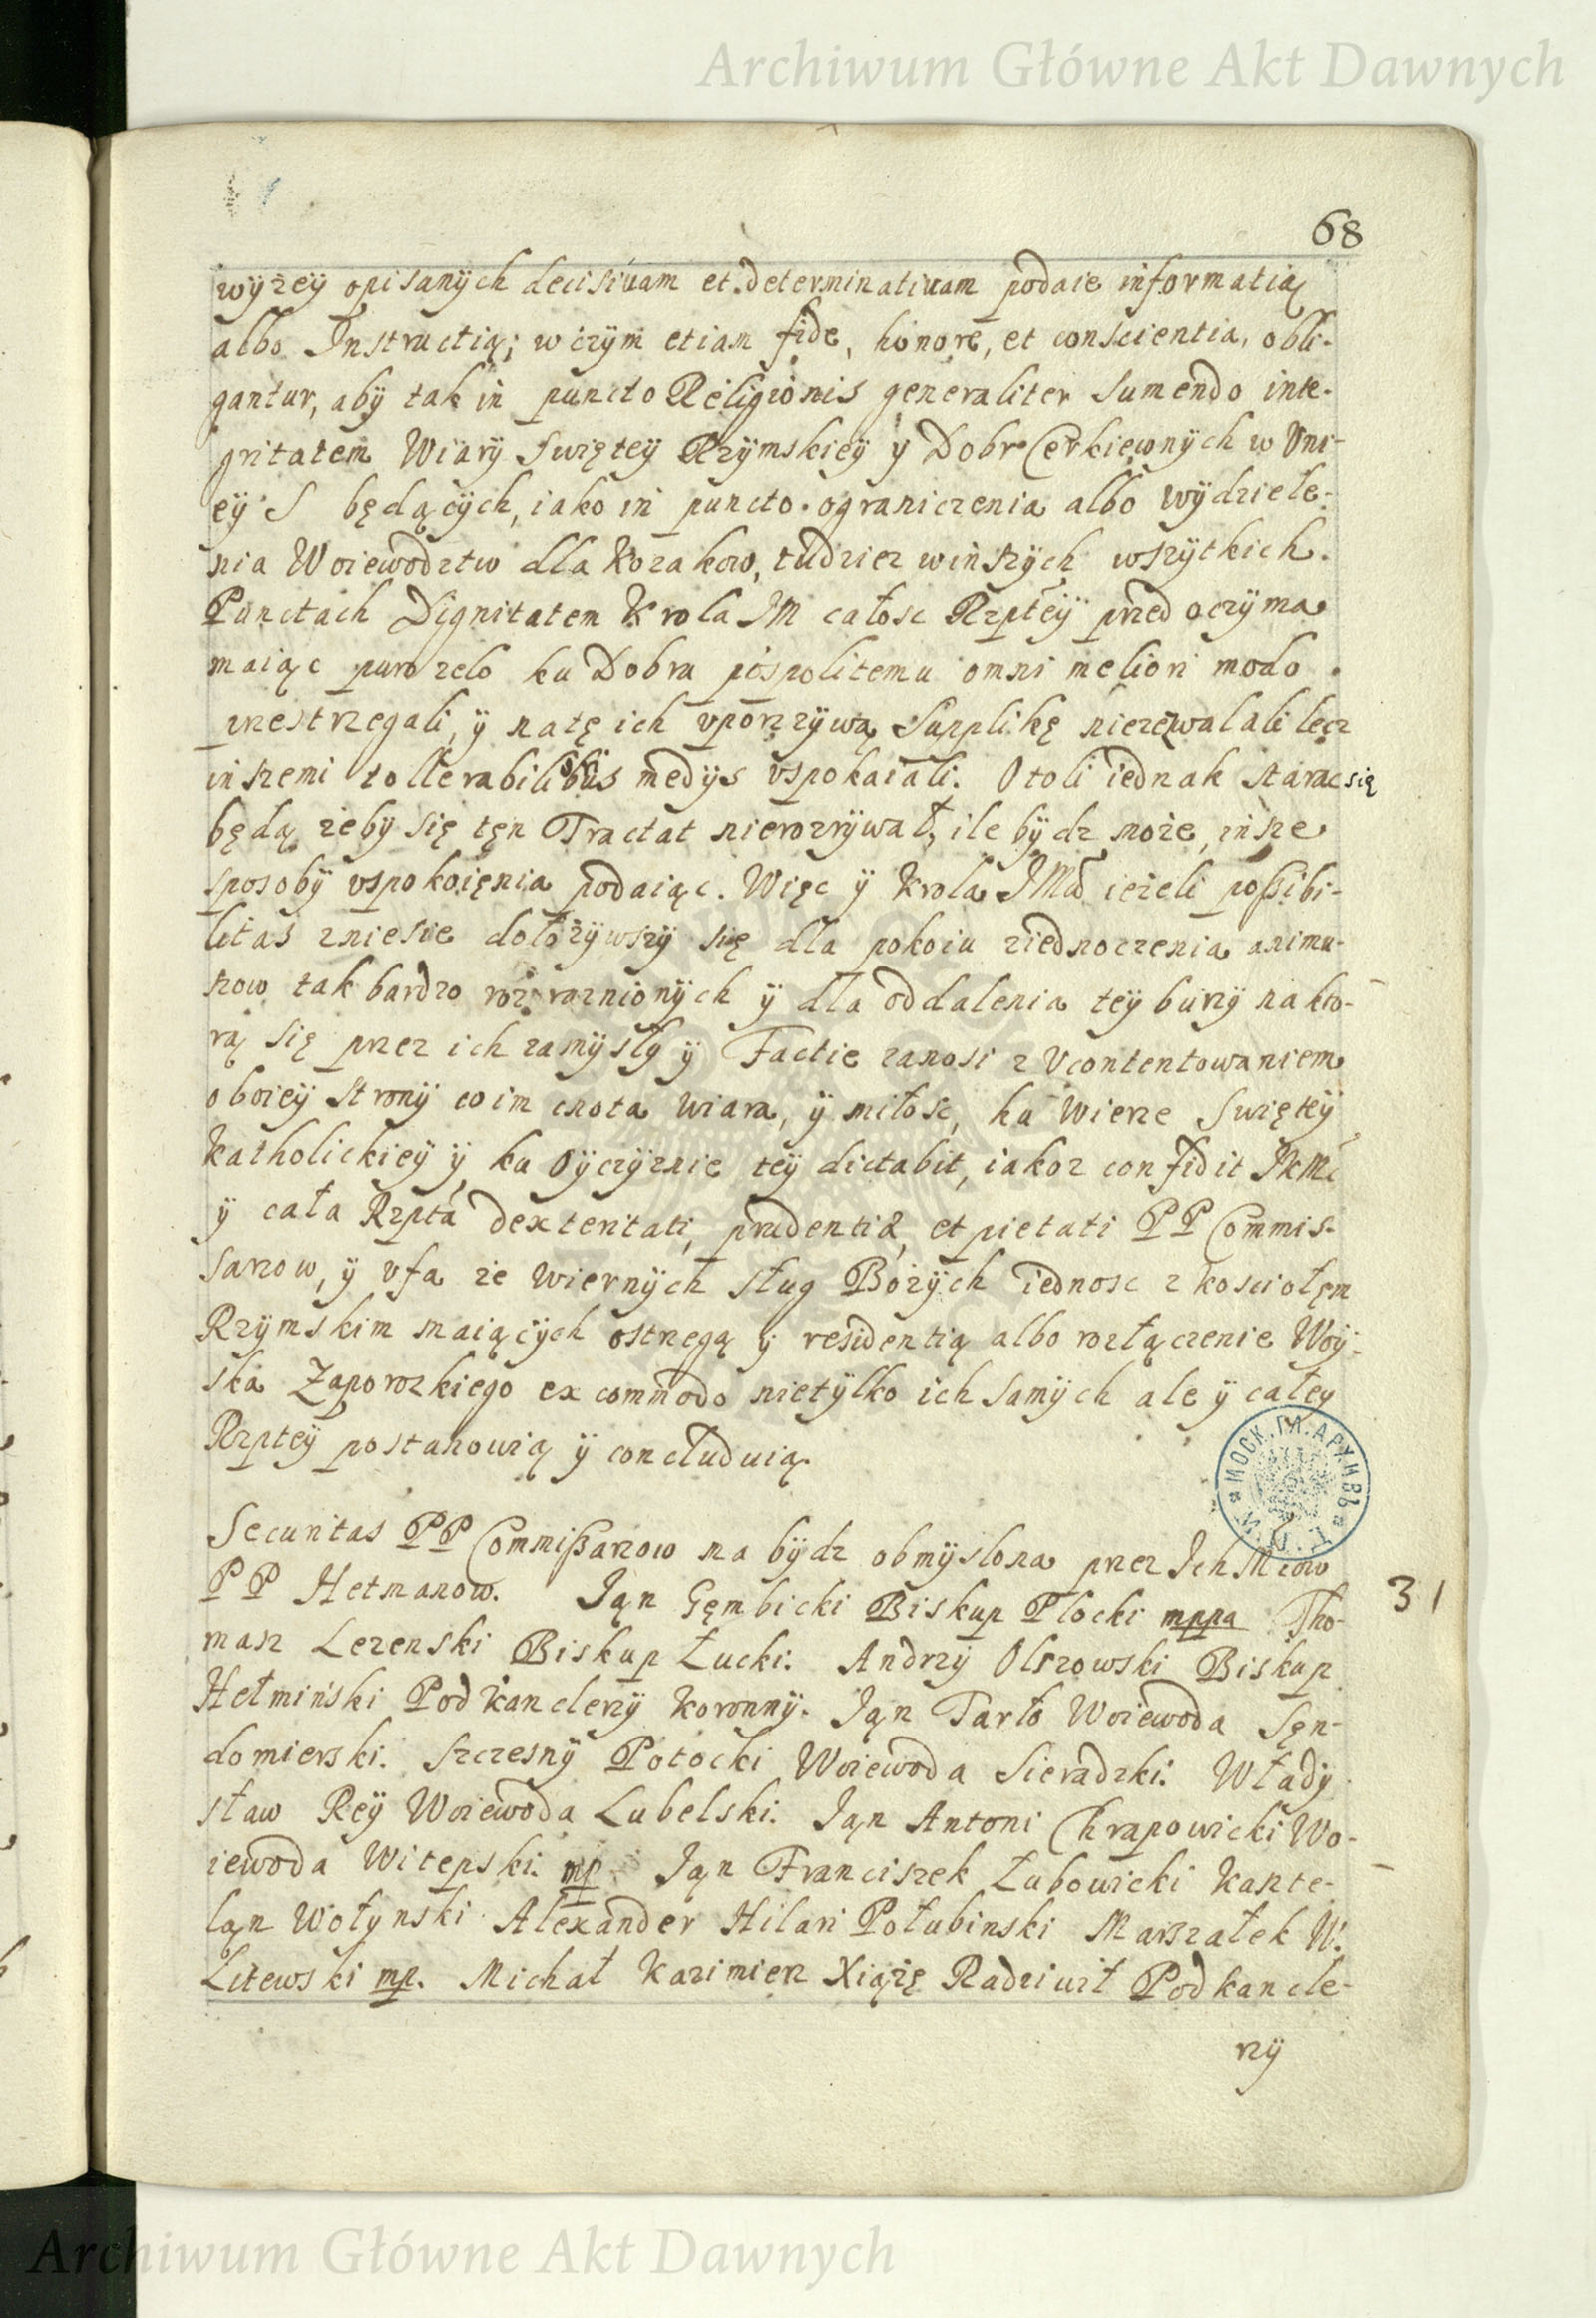 Archiwum Główne Akt Dawnych
68
wyzey opisanych decisiuam et determinatiuam podaie informatią
albo Instructią; w czym etiam fide, honore, et conscientia, obli-
gantur, aby tak in puncto Religionis generaliter sumendo inte-
gritatem Wiary Swiętey Rzymskiey y Dobr Cerkiewnych w Vni-
ey S będących, iako in puncto ograniczenia albo wydziele-
nia Woiewodztw dla Kozakow, tudziez w inszych wszytkich
Punctach Dignitatem Krola JM całosc Rzptey przed oczyma
maiąc puro zelo ku Dobru pospolitemu omni meliori modo
przestrzegali, y natę ich vporzywą Supplikę niezewalali lecz
inszemi tollerabilibus medys vspokaiali. Otoli iednak starac się
będą zeby się tęn Tractat nierozrywał, ile bydz moze, insze
sposoby vspokoięnia podaiąc. Więc y Krola JMci iezeli possibi-
litas zniesie dołozywszy się dla pokoiu ziednoczenia animu-
szow tak bardzo rozroznionych y dla oddalenia tey burzy na kto-
rą się przez ich zamysły y Factie zanosi z Vcontentowaniem
oboiey strony co im cnota wiara, y miłosc, ku Wierze Swiętey
Katholickiey y ku Oyczyznie tey dictabit, iakoz confidit JKMc
y cała Rzpta dexteritati, prudentiæ, et pietati PP Commis-
sarzow, y vfa ze wiernych sług Bozych iednosc z kosciołęm
Rzymskim maiących ostrzegą y residentią albo rozłączenie Woy-
ska Zaporozkiego ex commodo nietylko ich samych ale y całey
Rzptey postanowią y concluduią.
Securitas PP Commissarzow ma bydz obmyslona przez Ich Mciow
PP Hetmanow. Jąn Gęmbicki Biskup Plocki mppa Tho-
31
masz Lezenski Biskup Łucki. Andrzy Olszowski Biskup
Hełmiński Podkanclerzy Koronny. Jąn Tarło Woiewoda Sęn-
domierski. Szczesny Potocki Woiewoda Sieradzki. Włady
sław Rey Woiewoda Lubelski. Jąn Antoni Chrapowicki Wo-
iewoda Witepski mp Jąn Franciszek Łubowicki Kaszte-
ląn Wołynski Alexander Hilari Połubinski Marszałek W.
Litewski mp. Michał Kazimierz Xiązę Radziwił Podkancle-
rzy
МОСК. ГЛ. АРХИВЪ
Archiwum Główne Akt Dawnych